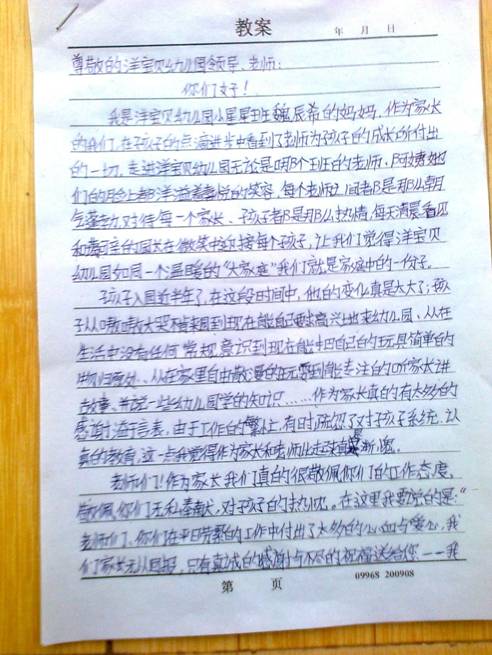 教案
年 月 日
尊敬的洋宝贝幼儿园领导、老师：
你们好！
我是洋宝贝幼儿园小星星班魏辰希的妈妈，作为家长
的我们，在孩子的点滴进步中看到了老师为孩子的成长所付出
的一切。走进洋宝贝幼儿园无论是哪个班的老师、阿姨她
们的脸上都洋溢着喜悦的笑容，每个老师之间都是那么朝
气蓬勃，对待每一个家长、孩子都是那么热情，每天清晨看见
和蔼可亲的园长在微笑迎接每个孩子，让我们觉得洋宝贝
幼儿园如同一个温暖的“大家庭”我们就是家庭中的一份子。
孩子入园近半年了，在这段时间中，他的变化真是太大了；孩
子从嗷嗷大哭不肯来园到现在能自己要求高兴地来幼儿园、从在
生活中没有任何常规意识到现在能把自己的玩具简单的
物归原处、从在家里自由散漫的玩耍到能专注的听家长讲
故事、并说一些幼儿园学的知识……作为家长真的有太多的
感谢溢于言表，由于工作的繁忙，有时疏忽了对孩子系统、认
真的教育，这一点我觉得作为家长和老师比起来真是惭愧。
老师们！作为家长我们真的很敬佩你们的工作态度，
敬佩你们无私奉献，对孩子的热忱。在这里我要说的是：“
老师们、你们在平日劳累的工作中付出了太多的心血与爱心，我
们家长无以回报，只有真诚的感谢与不尽的祝福送给您——我
第 页
09968 200908